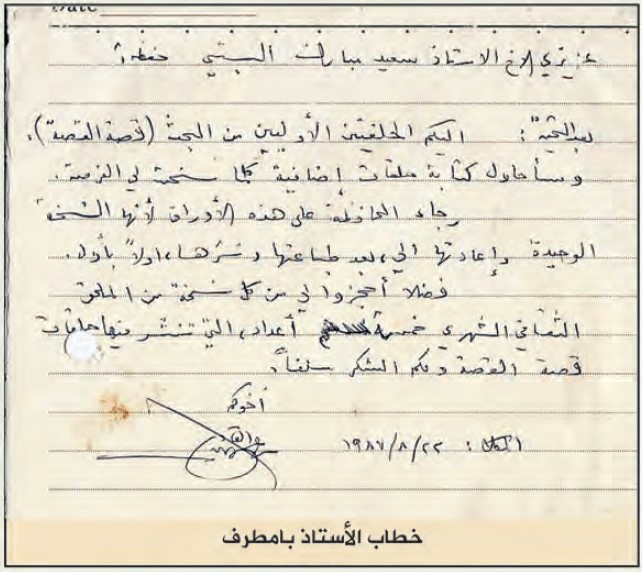 Date
عزيزي الأخ الاستاذ سعيد مبارك حفظه الله
بعد التحية: اليكم الحلقتين الأوليين من البحث (قصة القصة).
وسأحاول كتابة حلقات إضافية كلما سنحت لي الفرصة.
رجاء المحافظة على هذه الأوراق لأنها النسخة
الوحيدة وإعادتها الي، بعد طباعتها ونشرها، اولاً بأول.
فضلا احجزوا لي من كل نسخة من الملحق
الثقافي الشهري خمسة أعداد، التي تنشر فيها حلقات
قصة القصة ولكم الشكر سلفاً.
أخوكم
المكلا: ١٩٨٧/٨/٢٢
خطاب الأستاذ بامطرف